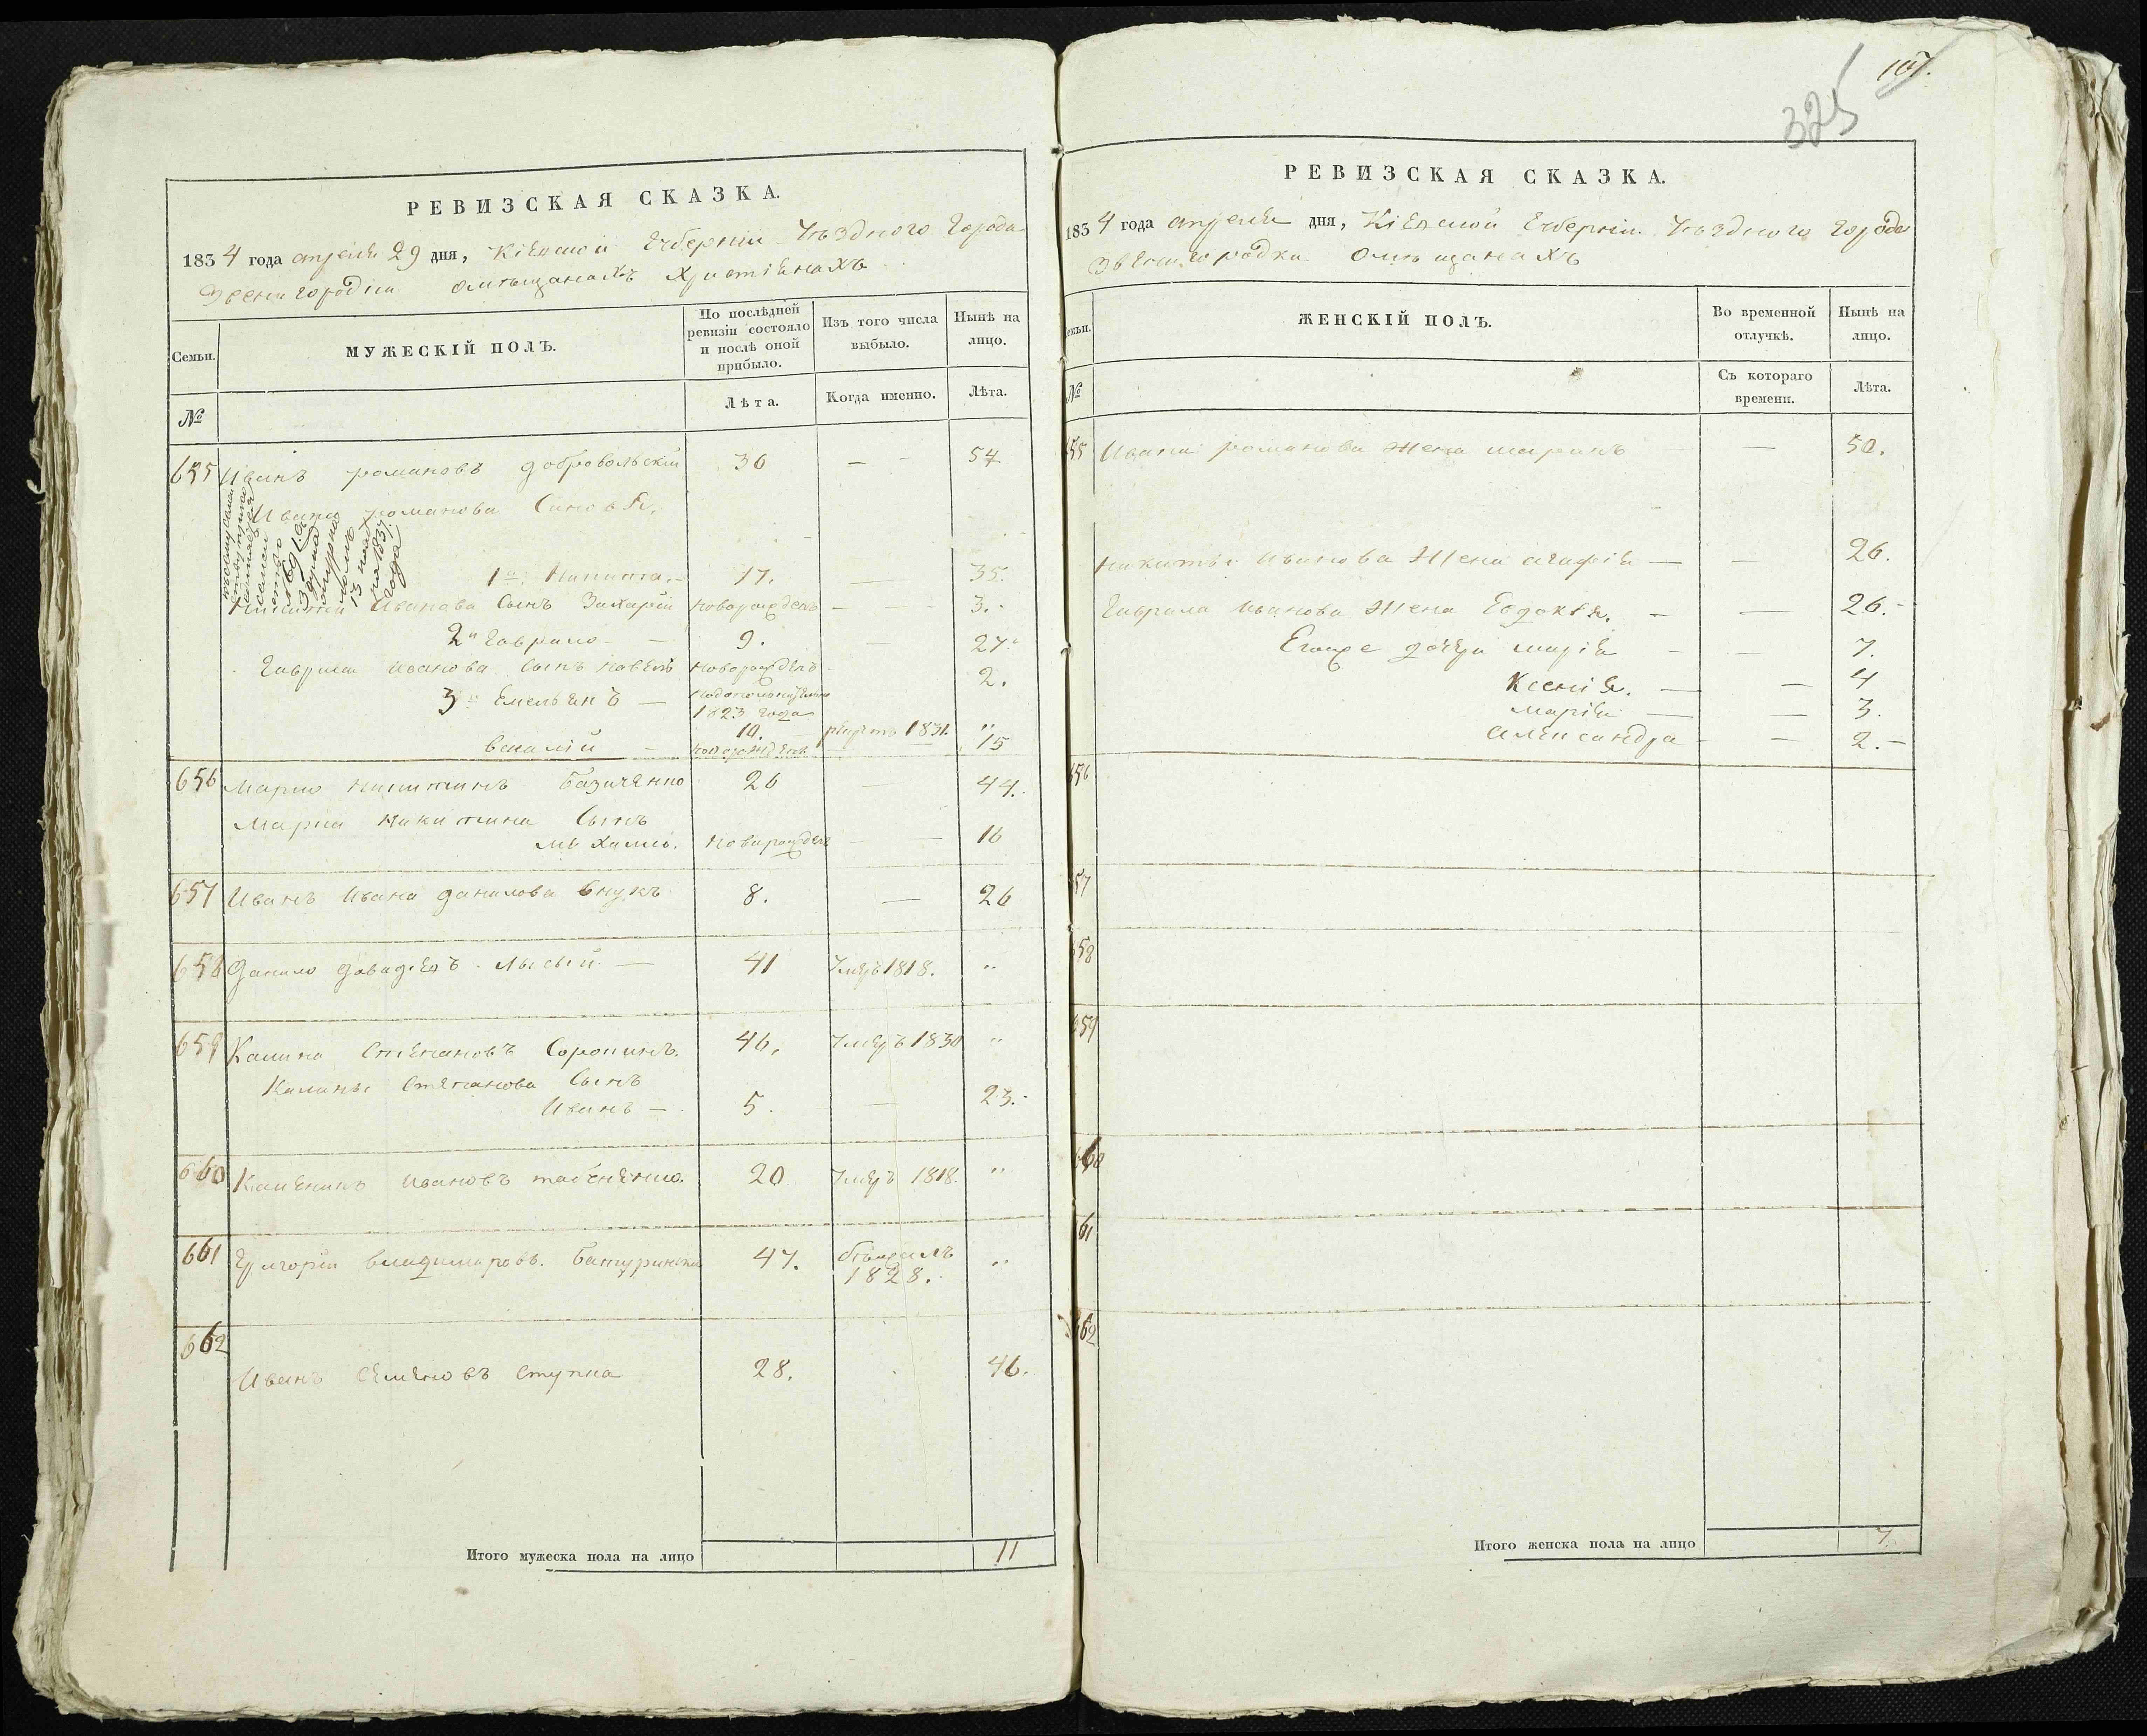 325
107.
РЕВИЗСКАЯ СКАЗКА.
1834 года апреля 29 дня, Кіевской Губерніи Уѣзднаго Города
Звенигородки омѣщанахъ христіянахъ
Семьи. МУЖЕСКІЙ ПОЛЪ. По послѣдней ревизіи состояло и послѣ оной прибыло. Изъ того числа выбыло. Нынѣ на лицо.
№ Лѣта. Когда именно. Лѣта.
655 Иванъ романовъ добровольскій 36 — 54
Ивана романова Синовя,
1й Никита. 17. — 35.
Никиты Иванова Сынъ Захарій новорожденъ — 3.
2й Гаврило — 9. — 27
Гаврила иванова сынъ павелъ новорожденъ 2.
3й Емельянъ —
1823 года
10. 1831. "
василій — новорожденъ 15
656 Марко никитинъ 26 — 44.
Марка Никитина Сынъ
михайло. новорожденъ — 16
657 Иванъ Ивана данилова внукъ 8. — 26
658 Данило давидовъ лысый — 41 умеръ 1818. "
659 Калина Степановъ Сорокинъ. 46. умеръ 1830 "
Калины Степанова Сынъ
Иванъ — 5. — 23.
660 ивановъ 20 умеръ 1818. "
661 Григорій владимировъ. батуринскій 47. 1828. "
662
Иванъ Семеновъ Ступка 28. 46.
Итого мужеска пола на лицо 11
РЕВИЗСКАЯ СКАЗКА.
1834 года апреля дня, Кіевской Губерніи. Уѣзднаго города
Звенигородки омѣщанахъ
Семьи. ЖЕНСКІЙ ПОЛЪ. Во временной отлучкѣ. Нынѣ на лицо.
№ Съ котораго времени. Лѣта.
655 Ивана романова Жена — 50.
никиты иванова Жена агафія — — 26.
Гаврила иванова Жена Евдокія. — — 26.
Егоже дочери марія — — 7.
Ксенія. — — 4
марія — — 3.
александра — — 2.
656
657
658
659
660
661
662
Итого женска пола на лицо 7.